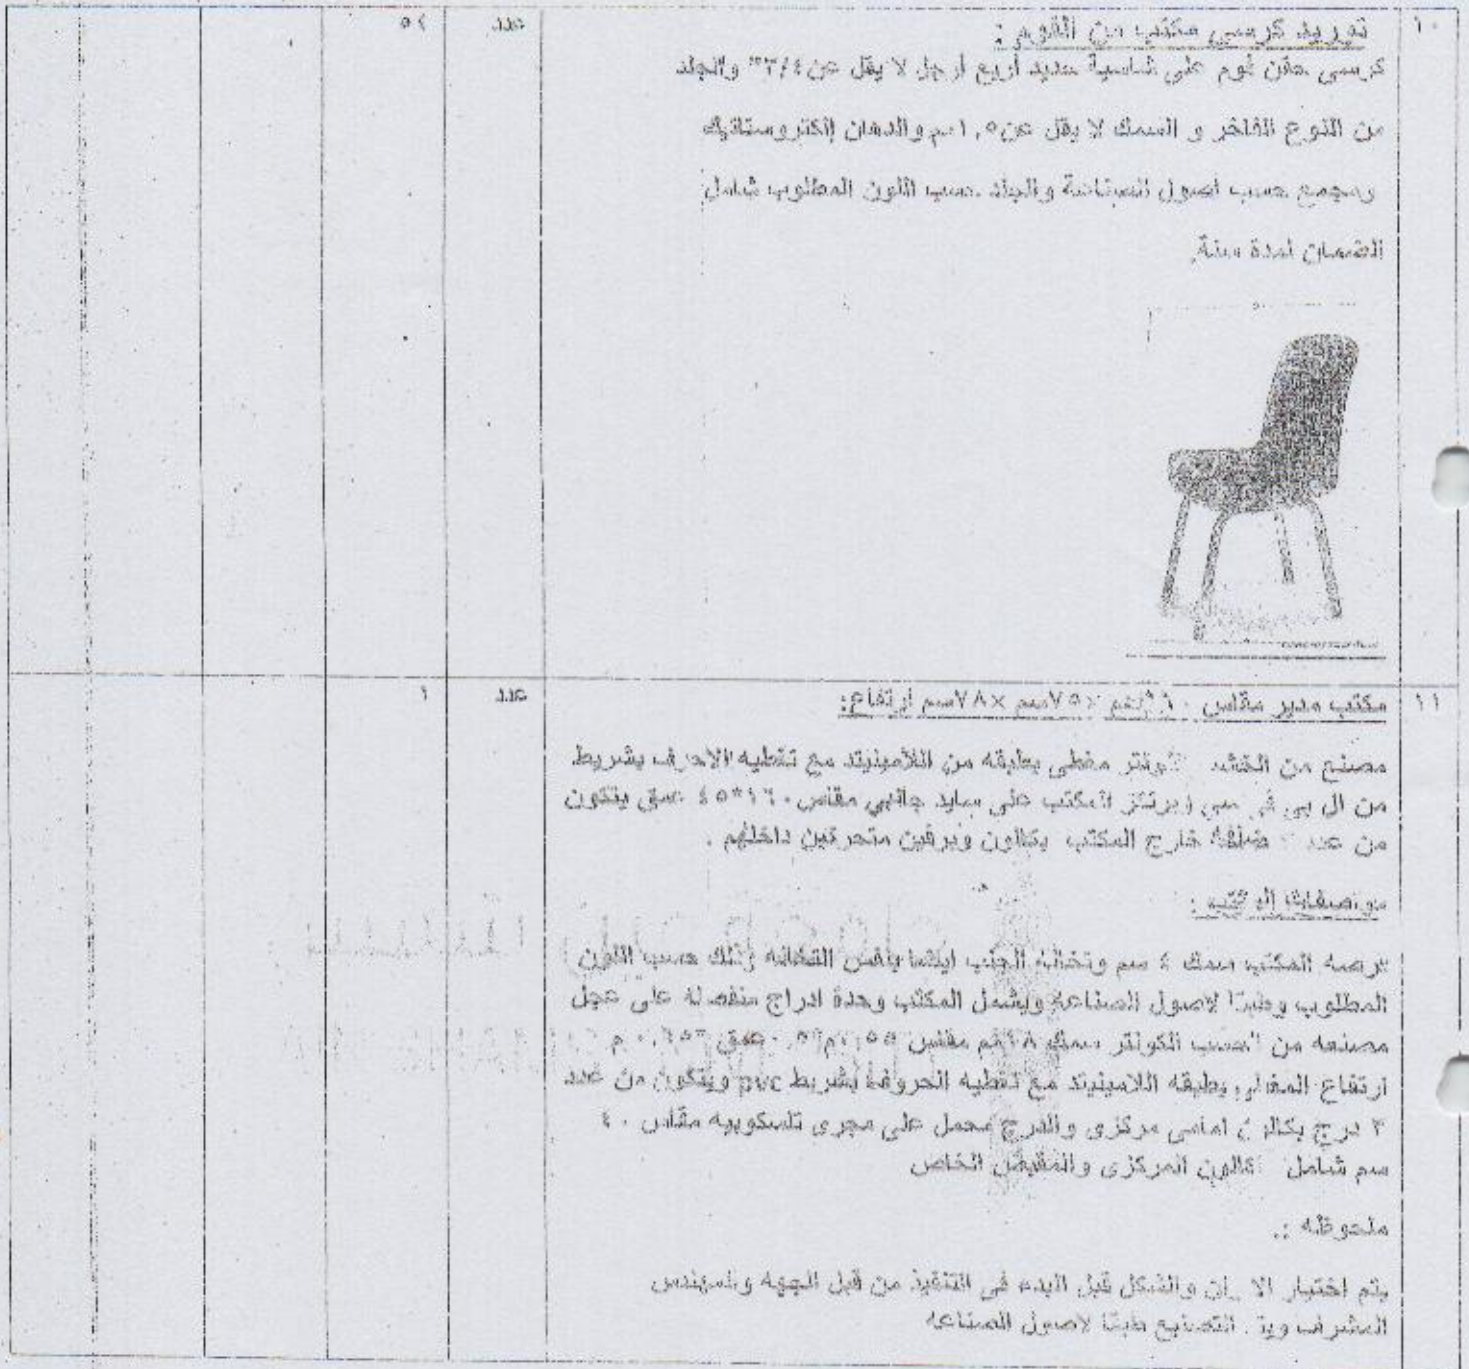 ١٠
توريد كرسى مكتب من الفوم :
عدد
٥٤
كرسى حقن فوم على شاسية حديد أربع أرجل لا يقل عن ٣/٤" والجلد
من النوع الفاخر و السمك لا يقل عن ١,٥سم والدهان إلكتروستاتيك
ومجمع حسب اصول الصناعة والجلد حسب اللون المطلوب شامل
الضمان لمدة سنة
١١
مكتب مدير مقاس ×٧٥سم ×٧٨سم ارتفاع:
عدد
١
مصنع من الخشب مغطى بطبقه من اللامينيتد مع تغطيه الاحرف بشريط
من ال بى فى سى ويرتكز المكتب على سايد جانبي مقاس ١٦٠*٤٥ عمق يتكون
من عدد ضلفة خارج المكتب بكالون وبرفين متحركين داخلهم .
مواصفات المكتب :
قرصه المكتب سمك ٤ سم وتخانه الجنب ايضا بنفس التخانه وذلك حسب اللون
المطلوب وطبقا لاصول الصناعه ويشمل المكتب وحدة ادراج منفصلة على عجل
مصنعه من الكونتر سمك مقاس عمق ٠,٦٥ م
ارتفاع المغطى بطبقه اللامينيتد مع تغطيه الحروف بشريط pvc ويتكون من عدد
٣ درج بكالون امامى مركزى والدرج محمل على مجرى تلسكوبيه مقاس ٤٠
سم شامل الكالون المركزى والمقبض الخاص
ملحوظه :.
يتم اختيار والشكل قبل البدء فى التنفيذ من قبل الجهه والمهندس
المشرف التصنيع طبقا لاصول الصناعه